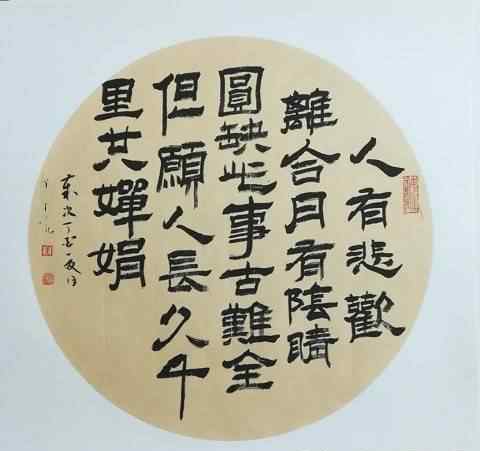 人有悲歡
離合月有陰晴
圓缺此事古難全
但願人長久千
里共嬋娟
歲次丁酉